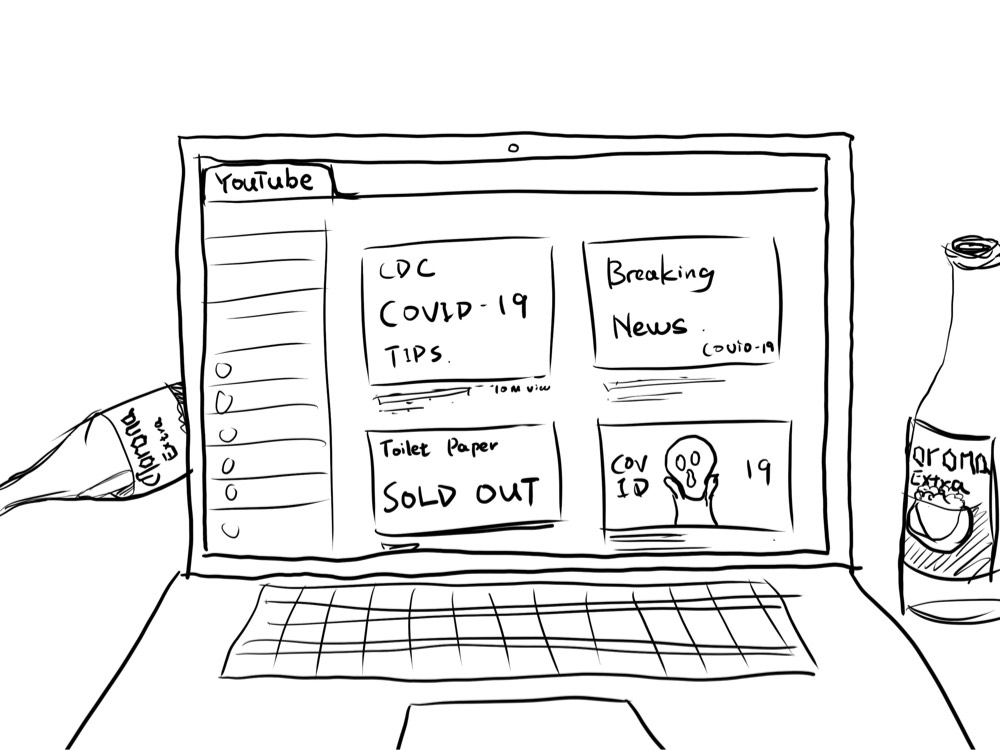 YouTube
CDC
COVID-19
TIPS.
10M view
Breaking
News.
COVID-19
Toilet Paper
SOLD OUT
COV
ID
19
Corona
Extra
orona
Extra